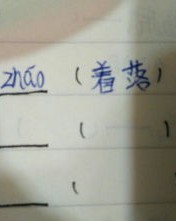 zháo（着落）
（    ）
（